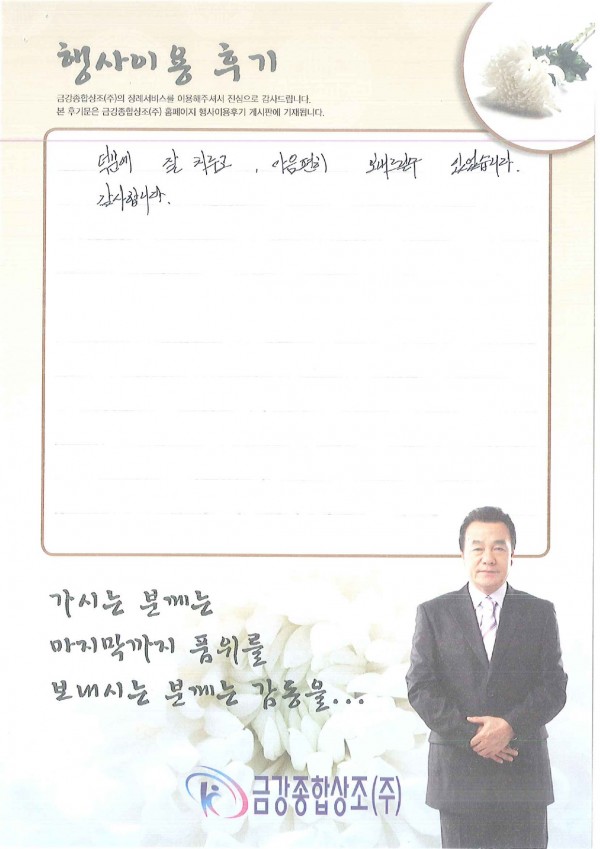 행사이용 후기
금강종합상조(주)의 장례서비스를 이용해주셔서 진심으로 감사드립니다.
본 후기문은 금강종합상조(주) 홈페이지 행사이용후기 게시판에 기재됩니다.
덕분에 잘 치루고, 마음편히 보내드릴수 있었습니다.
감사합니다.
가시는 분께는
마지막까지 품위를
보내시는 분께는 감동을...
금강종합상조(주)